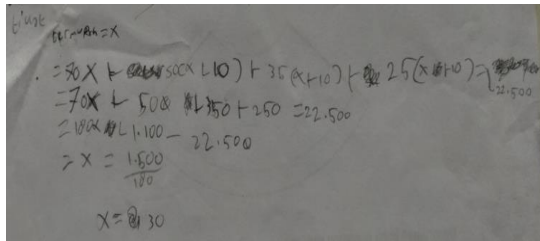 = X
= 70X + 50(X + 10) + 35(X+10) + 25(X+10) =
22.500
= 70X + 500 + 350 + 250 = 22.500
= 180X + 1.100 - 22.500
= X = 1.500
180
X = 30